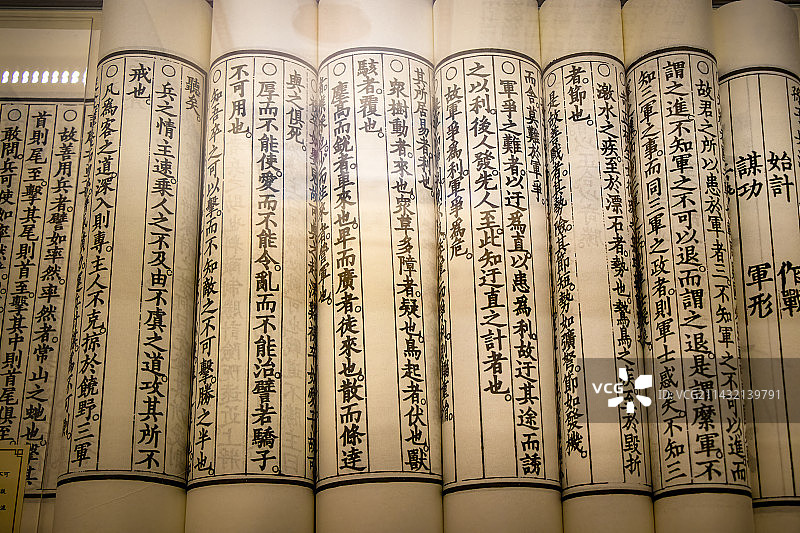 始計 作戰
謀功 軍形
○故君之所以患於軍者三。不知軍之不可以進而
謂之進。不知軍之不可以退。而謂之退。是謂縻軍。不
知三軍之事。而同三軍之政者。則軍士惑矣。不知三
○激水之疾。至於漂石者。勢也。鷙鳥之至於毀折
者。節也。
是故善戰者。其勢險。其節短。勢如彍弩。節如發機。
○軍爭之難者。以迂爲直。以患爲利。故迂其途。而誘
之以利。後人發。先人至。此知迂直之計者也。
○故軍爭爲利。軍爭爲危。
其所居易者。利也。
○衆樹動者。來也。衆草多障者。疑也。鳥起者。伏也。獸
駭者。覆也。
○塵高而銳者。車來也。卑而廣者。徒來也。散而條達
與之俱死。
○厚而不能使。愛而不能令。亂而不能治。譬若驕子。
不可用也。
○知吾卒之可以擊。而不知敵之不可擊。勝之半也。
聽矣。
○兵之情主速。乘人之不及。由不虞之道。攻其所不
戒也。
○凡爲客之道。深入則專。主人不克。掠於饒野。三軍
○故善用兵者。譬如率然。率然者。常山之蛇也。擊其
首則尾至。擊其尾則首至。擊其中則首尾俱至。
○敢問兵可使如率然
VCG
VCG211432139791